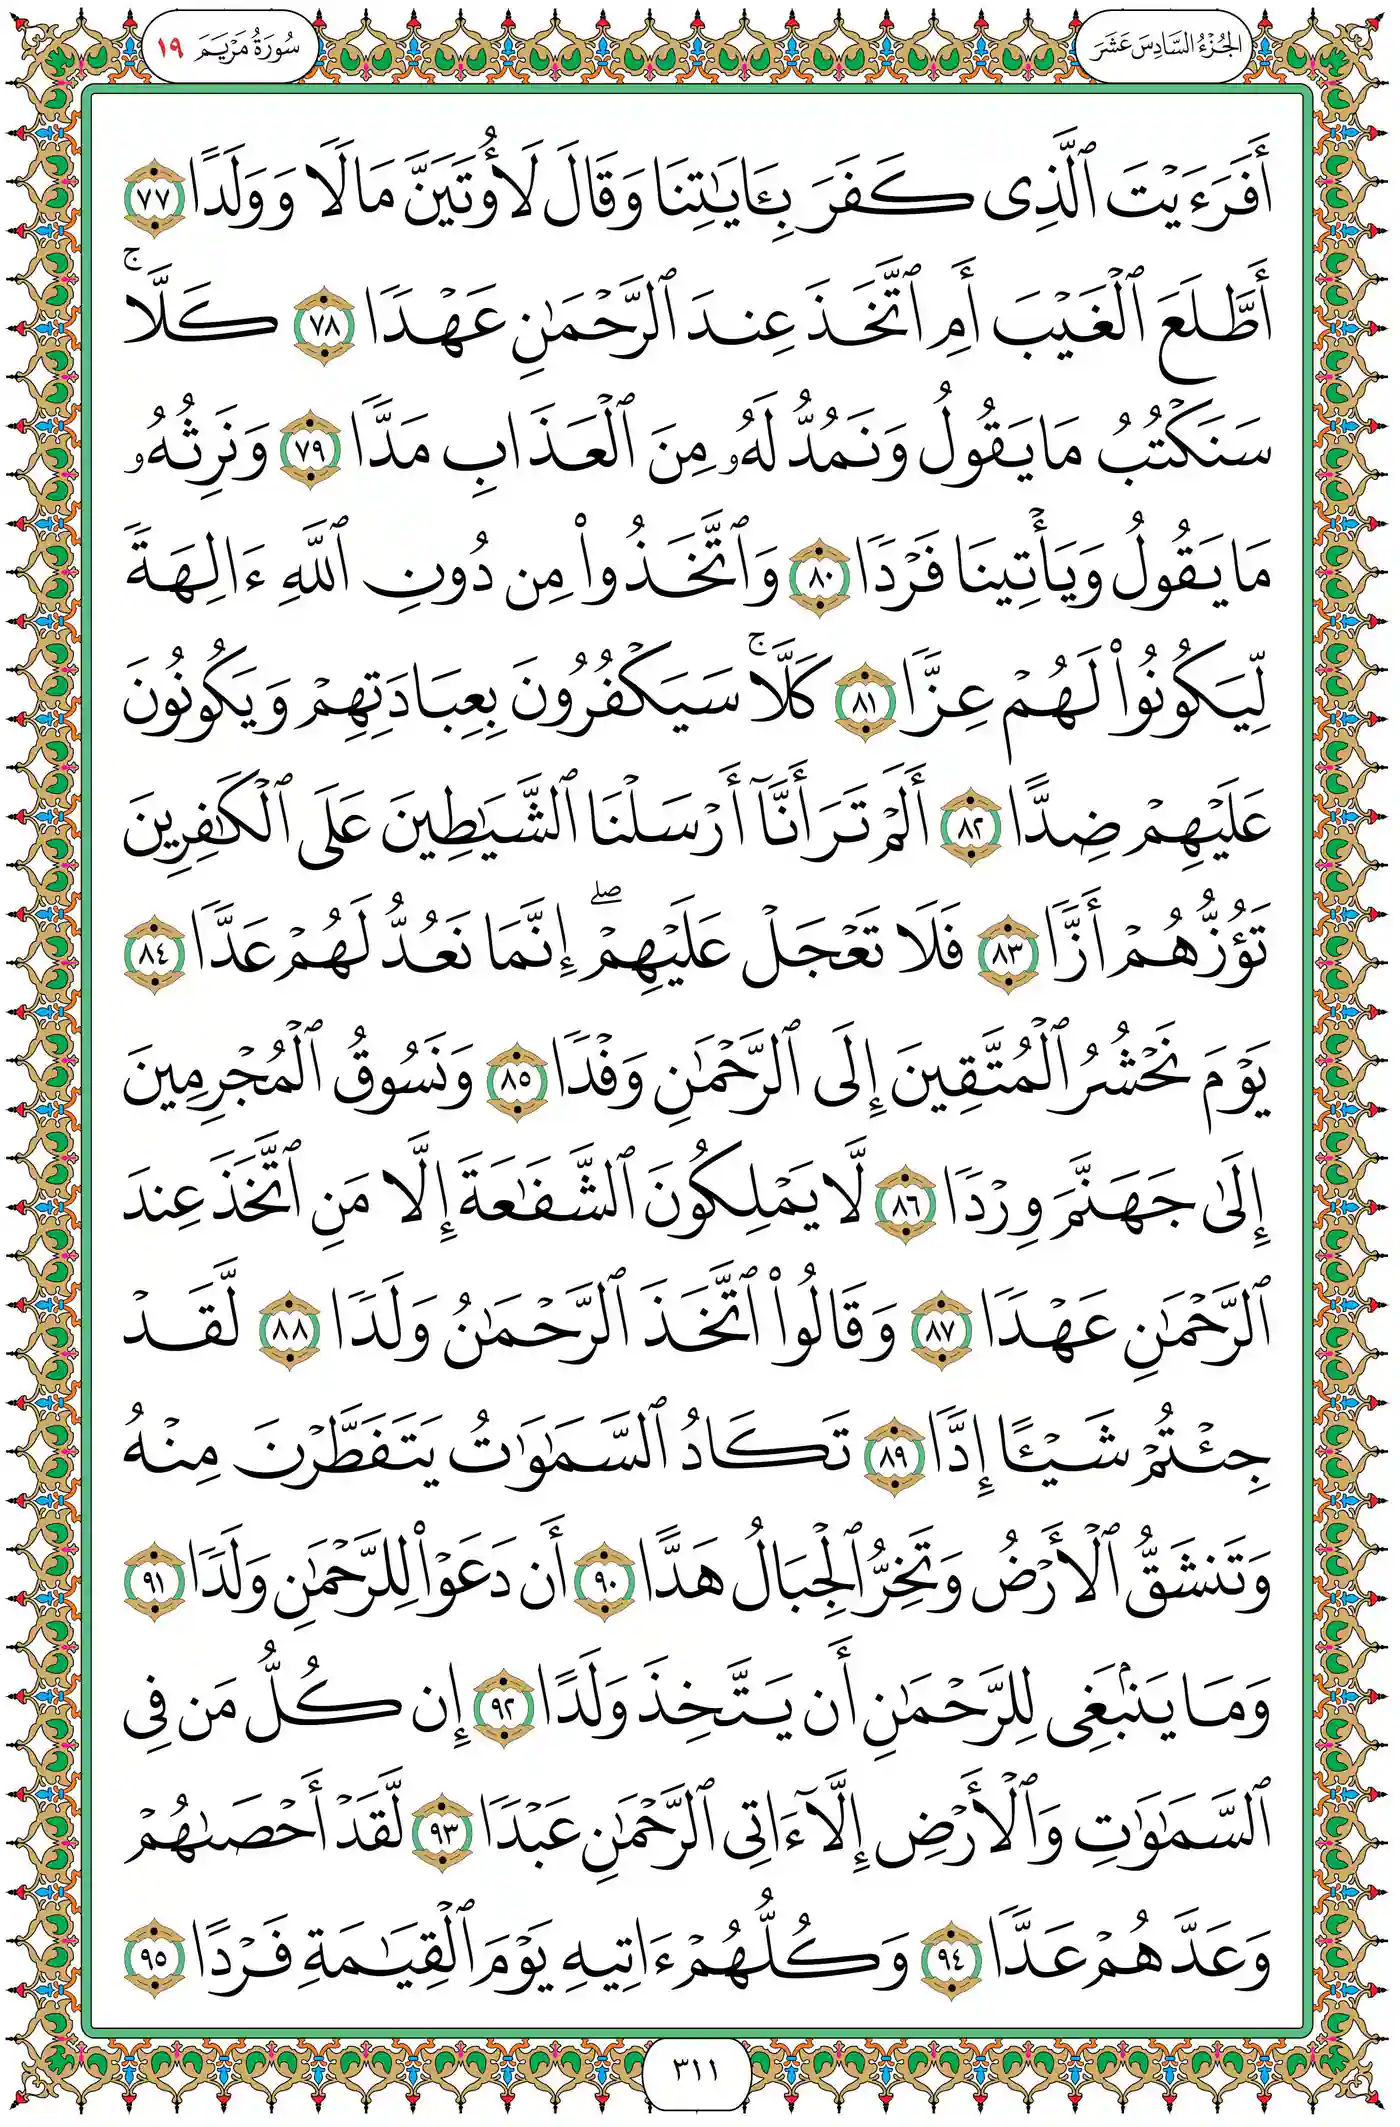 الجُزْءُ السَّادِسَ عَشَرَ
سُورَةُ مَرْيَمَ ١٩
أَفَرَءَيْتَ ٱلَّذِى كَفَرَ بِـَٔايَـٰتِنَا وَقَالَ لَأُوتَيَنَّ مَالًا وَوَلَدًا ٧٧
أَطَّلَعَ ٱلْغَيْبَ أَمِ ٱتَّخَذَ عِندَ ٱلرَّحْمَـٰنِ عَهْدًا ٧٨ كَلَّا ۚ
سَنَكْتُبُ مَا يَقُولُ وَنَمُدُّ لَهُۥ مِنَ ٱلْعَذَابِ مَدًّا ٧٩ وَنَرِثُهُۥ
مَا يَقُولُ وَيَأْتِينَا فَرْدًا ٨٠ وَٱتَّخَذُوا۟ مِن دُونِ ٱللَّهِ ءَالِهَةً
لِّيَكُونُوا۟ لَهُمْ عِزًّا ٨١ كَلَّا ۚ سَيَكْفُرُونَ بِعِبَادَتِهِمْ وَيَكُونُونَ
عَلَيْهِمْ ضِدًّا ٨٢ أَلَمْ تَرَ أَنَّآ أَرْسَلْنَا ٱلشَّيَـٰطِينَ عَلَى ٱلْكَـٰفِرِينَ
تَؤُزُّهُمْ أَزًّا ٨٣ فَلَا تَعْجَلْ عَلَيْهِمْ ۖ إِنَّمَا نَعُدُّ لَهُمْ عَدًّا ٨٤
يَوْمَ نَحْشُرُ ٱلْمُتَّقِينَ إِلَى ٱلرَّحْمَـٰنِ وَفْدًا ٨٥ وَنَسُوقُ ٱلْمُجْرِمِينَ
إِلَىٰ جَهَنَّمَ وِرْدًا ٨٦ لَّا يَمْلِكُونَ ٱلشَّفَـٰعَةَ إِلَّا مَنِ ٱتَّخَذَ عِندَ
ٱلرَّحْمَـٰنِ عَهْدًا ٨٧ وَقَالُوا۟ ٱتَّخَذَ ٱلرَّحْمَـٰنُ وَلَدًا ٨٨ لَّقَدْ
جِئْتُمْ شَيْـًٔا إِدًّا ٨٩ تَكَادُ ٱلسَّمَـٰوَٰتُ يَتَفَطَّرْنَ مِنْهُ
وَتَنشَقُّ ٱلْأَرْضُ وَتَخِرُّ ٱلْجِبَالُ هَدًّا ٩٠ أَن دَعَوْا۟ لِلرَّحْمَـٰنِ وَلَدًا ٩١
وَمَا يَنۢبَغِى لِلرَّحْمَـٰنِ أَن يَتَّخِذَ وَلَدًا ٩٢ إِن كُلُّ مَن فِى
ٱلسَّمَـٰوَٰتِ وَٱلْأَرْضِ إِلَّآ ءَاتِى ٱلرَّحْمَـٰنِ عَبْدًا ٩٣ لَّقَدْ أَحْصَىٰهُمْ
وَعَدَّهُمْ عَدًّا ٩٤ وَكُلُّهُمْ ءَاتِيهِ يَوْمَ ٱلْقِيَـٰمَةِ فَرْدًا ٩٥
٣١١